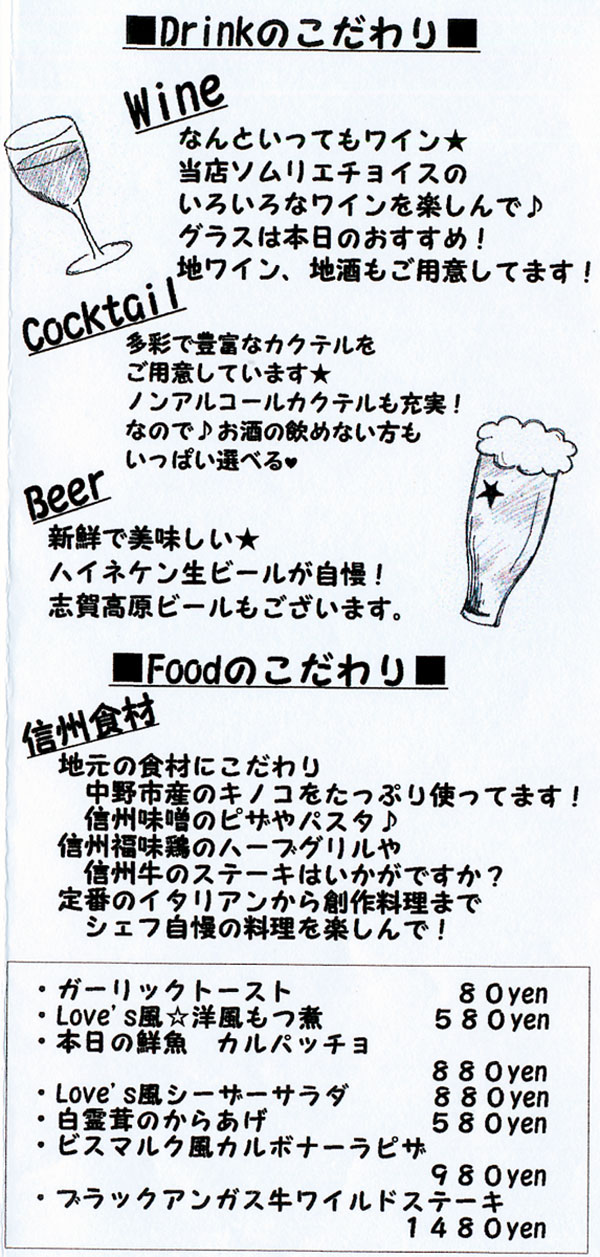 ■Drinkのこだわり■
Wine
なんといってもワイン★
当店ソムリエチョイスの
いろいろなワインを楽しんで♪
グラスは本日のおすすめ！
地ワイン、地酒もご用意してます！
Cocktail
多彩で豊富なカクテルを
ご用意しています★
ノンアルコールカクテルも充実！
なので♪お酒の飲めない方も
いっぱい選べる♥
Beer
新鮮で美味しい★
ハイネケン生ビールが自慢！
志賀高原ビールもございます。
■Foodのこだわり■
信州食材
地元の食材にこだわり
中野市産のキノコをたっぷり使ってます！
信州味噌のピザやパスタ♪
信州福味鶏のハーブグリルや
信州牛のステーキはいかがですか？
定番のイタリアンから創作料理まで
シェフ自慢の料理を楽しんで！
・ガーリックトースト ８０yen
・Love's風☆洋風もつ煮 ５８０yen
・本日の鮮魚　カルパッチョ
８８０yen
・Love's風シーザーサラダ ８８０yen
・白霊茸のからあげ ５８０yen
・ビスマルク風カルボナーラピザ
９８０yen
・ブラックアンガス牛ワイルドステーキ
１４８０yen